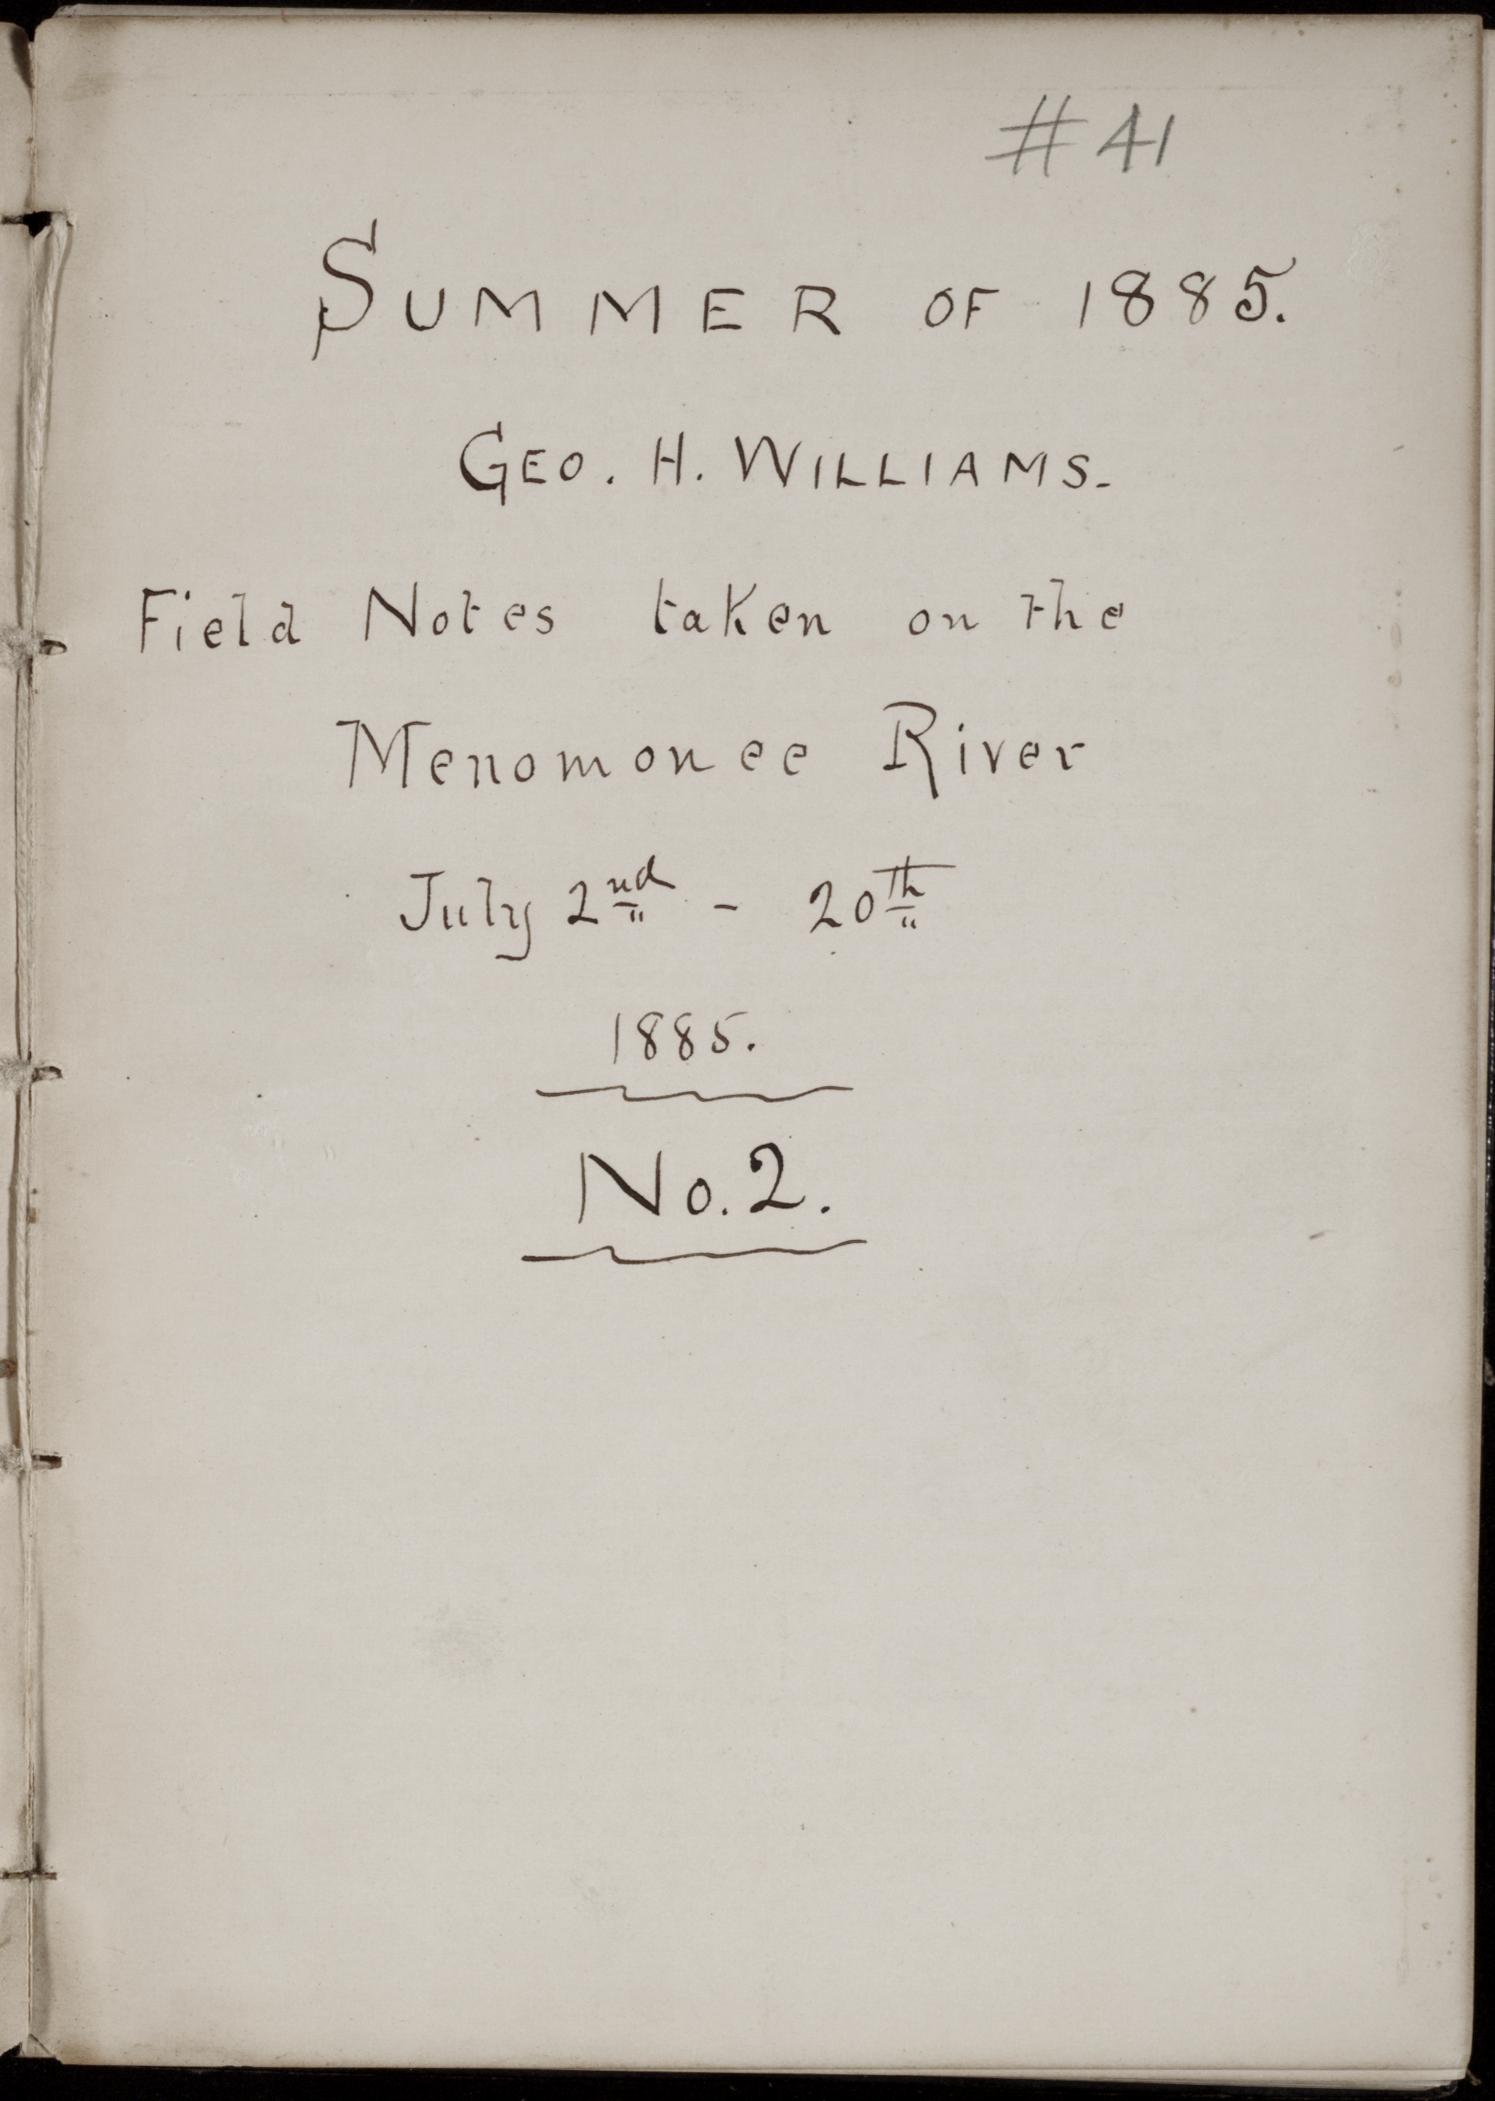 #41
SUMMER OF 1885.
GEO. H. WILLIAMS.
Field Notes taken on the
Menomonee River
July 2nd - 20th
1885.
No. 2.